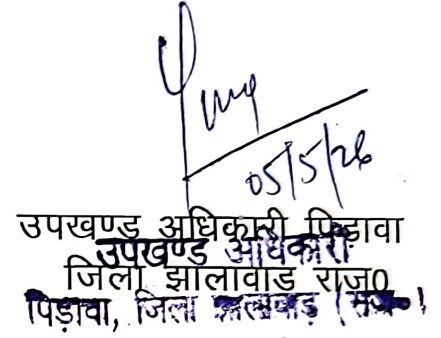 05/5/26
उपखण्ड अधिकारी पिड़ावा
उपखण्ड अधिकारी
जिला झालावाड राज0
पिड़ावा, जिला झालावाड़ (राज०)